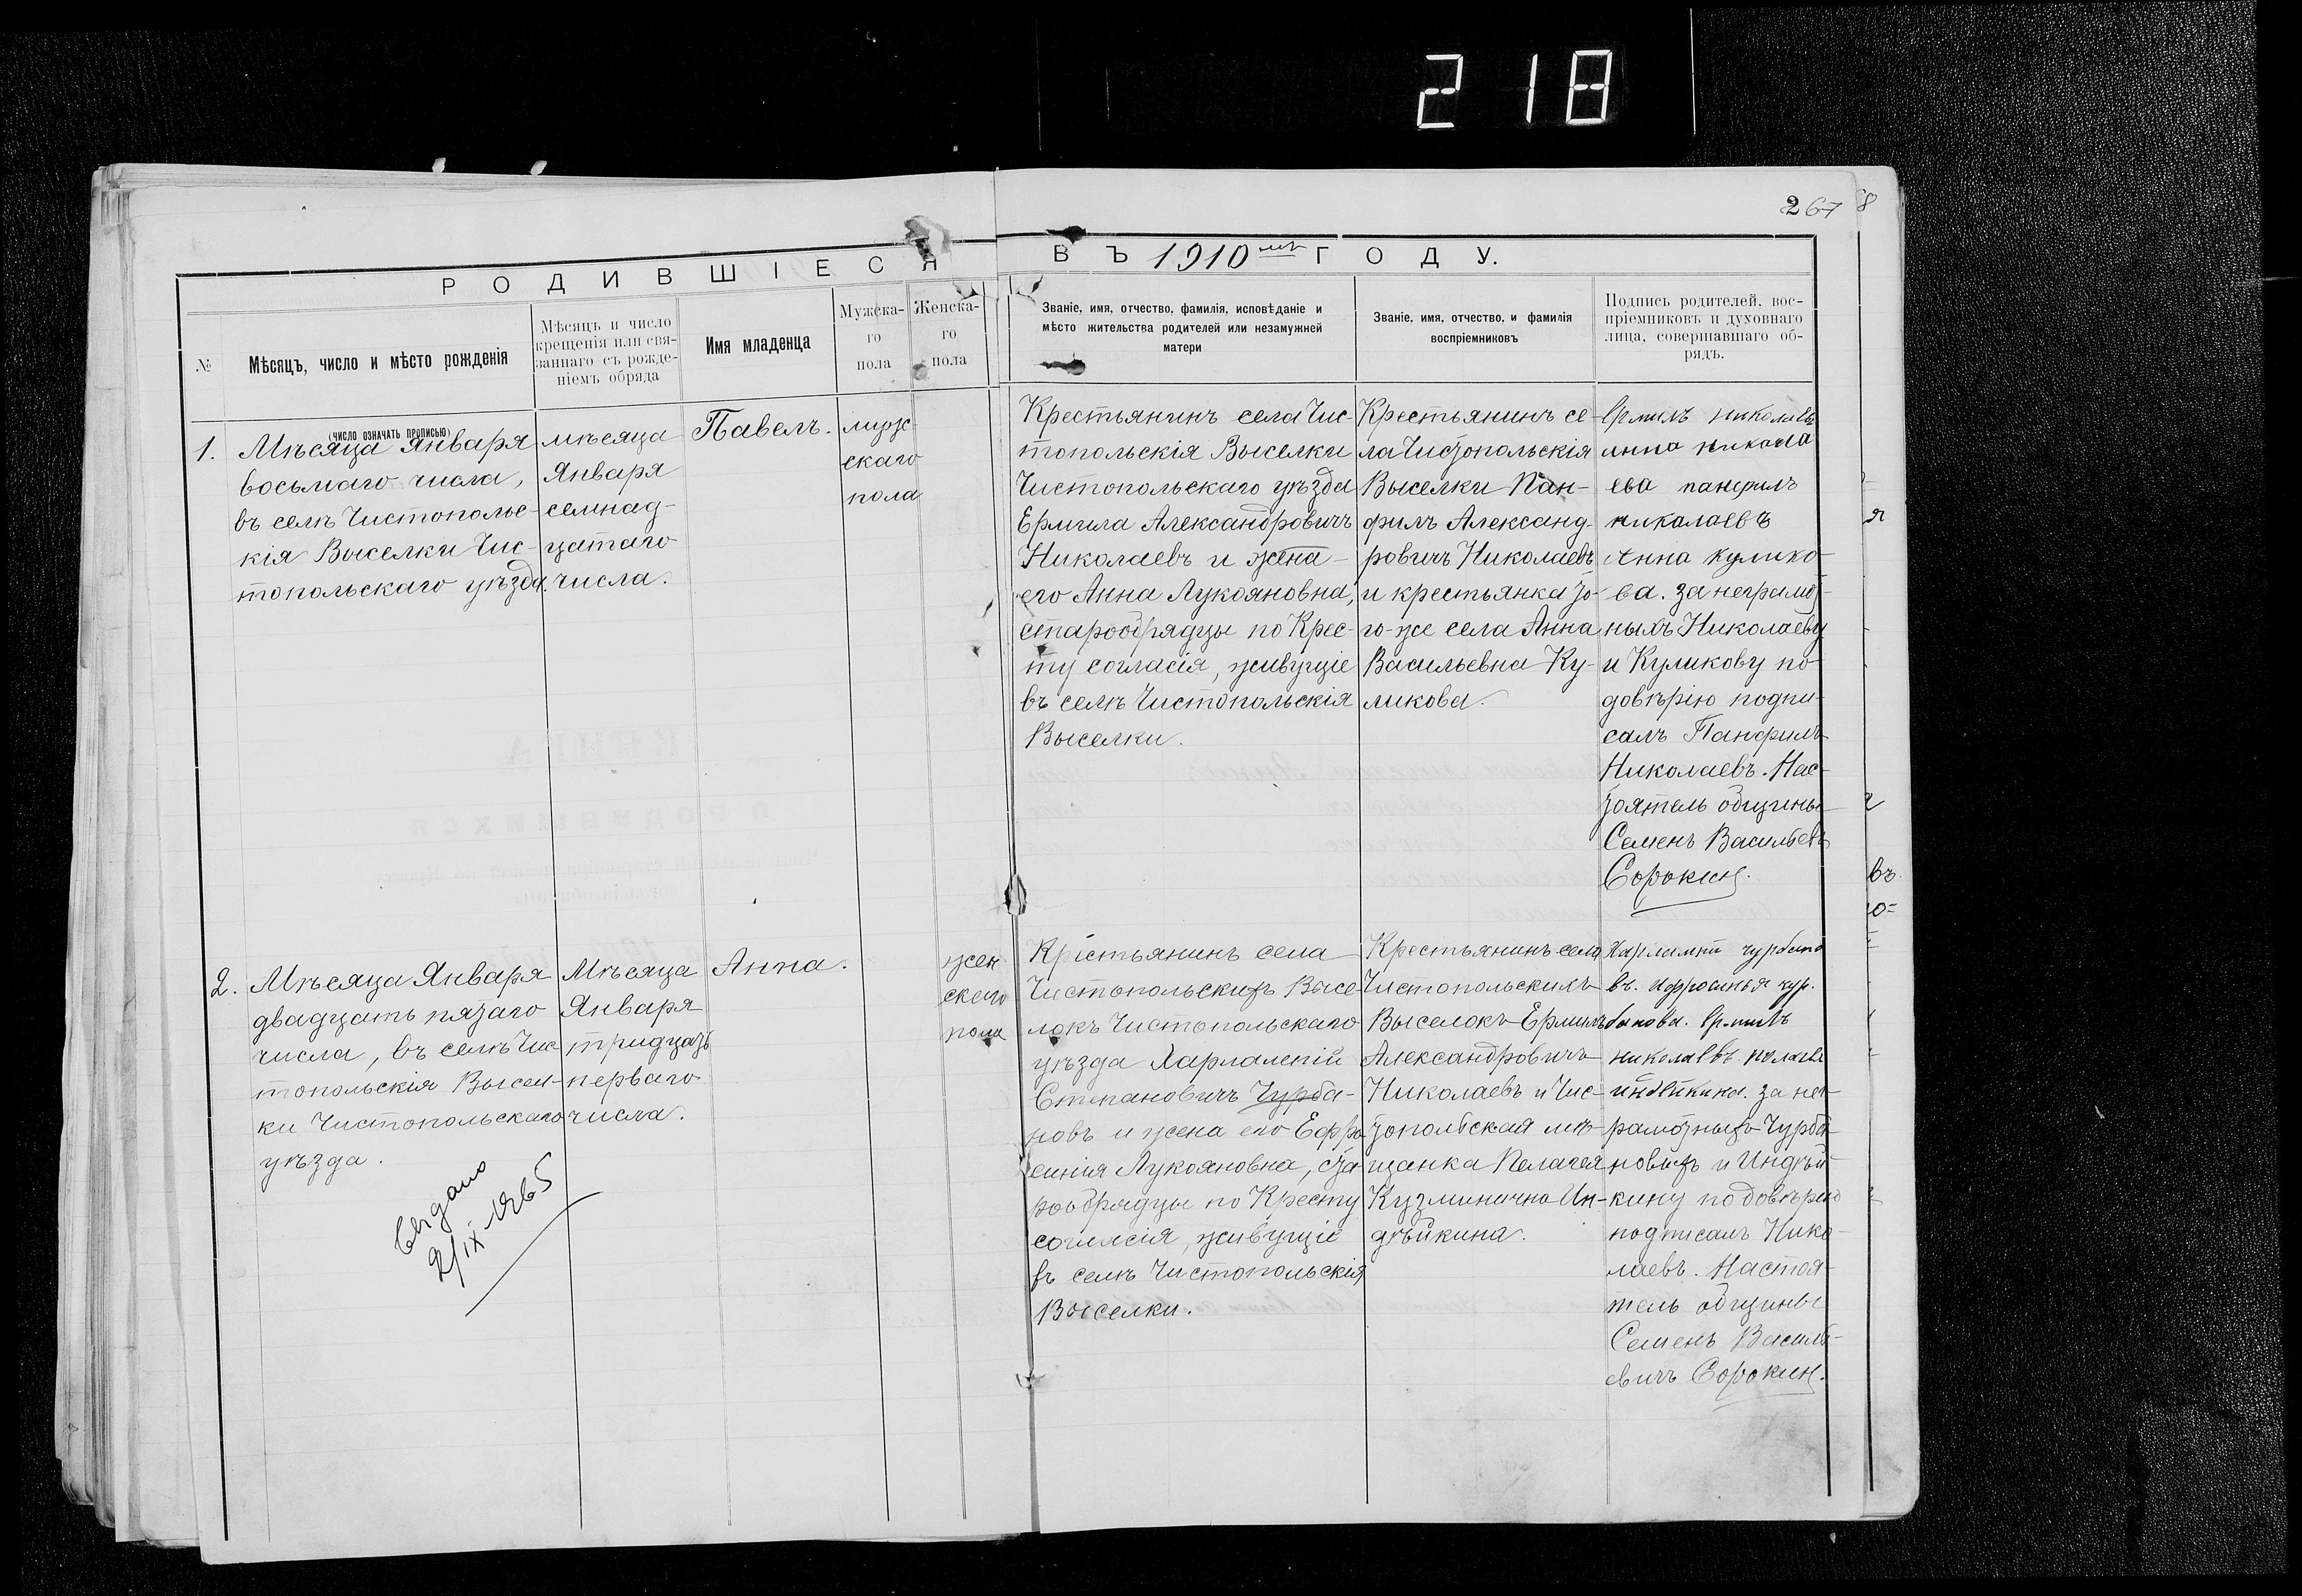 218
267
8
РОДИВШІЕСЯ
ВЪ 1910 мъ ГОДУ.
№
Мѣсяцъ, число и мѣсто рожденія
(число означать прописью)
Мѣсяцъ и число
крещенія или свя-
заннаго съ рожде-
ніемъ обряда
Имя младенца
Мужска-
го
пола
Женска-
го
пола
Званіе, имя, отчество, фамилія, исповѣданіе и
мѣсто жительства родителей или незамужней
матери
Званіе, имя, отчество, и фамилія
воспріемниковъ
Подпись родителей, вос-
пріемниковъ и духовнаго
лица, совершавшаго об-
рядъ.
1.
Мѣсяца Января
восьмаго числа,
въ селѣ Чистопольс-
кія Выселки Чис-
топольскаго уѣзда.
мѣсяца
Января
семнад-
цатаго
числа.
Павелъ.
муж-
скаго
пола
Крестьянинъ села Чис-
топольскія Выселки
Чистопольскаго уѣзда
Ермила Александровичъ
Николаевъ и жена
его Анна Лукояновна,
старообрядцы по Крес-
ту согласія, живущіе
въ селѣ Чистопольскія
Выселки.
Крестьянинъ се-
ла Чистопольскія
Выселки Пан-
филъ Александ-
ровичъ Николаевъ
и крестьянка то-
го-же села Анна
Васильевна Ку-
ликова.
Ермилъ николаевъ
анна никола
ева панфилъ
николаевъ
Анна кулико-
ва. за неграмот-
ныхъ Николаеву
и Куликову по
довѣрію подпи-
салъ Панфилъ
Николаевъ. Нас-
тоятель общины
Семенъ Васильевъ
Сорокин.
2.
Мѣсяца Января
двадцать пятаго
числа, въ селѣ Чис
топольскія Высел-
ки Чистопольскаго
уѣзда.
Мѣсяца
Января
тридцать
перваго
числа.
Анна.
жен
скаго
пола
Крестьянинъ села
Чистопольскихъ Высе
локъ Чистопольскаго
уѣзда Харлампій
Степановичъ Чурба-
новъ и жена его Ефро
синія Лукояновна, ста
рообрядцы по Кресту
согласія, живущіе
въ селѣ Чистопольскія
Выселки.
Крестьянинъ села
Чистопольскихъ
Выселокъ Ермилъ
Александровичъ
Николаевъ и Чис-
топольская мѣ-
щанка Пелагея
Кузминична Ин-
дѣйкина.
Харлампи чурбано
въ. Ифросинья чур.
банова. Ермилъ
николаевъ пелагея
индейкина. за нег-
рамотныхъ Чурба-
новыхъ и Индѣй-
кину по довѣрею
подписалъ Нико-
лаевъ. Настоя-
тель общины
Семенъ Василь-
евичъ Сорокин.
2/IX-1965
въ
ю=